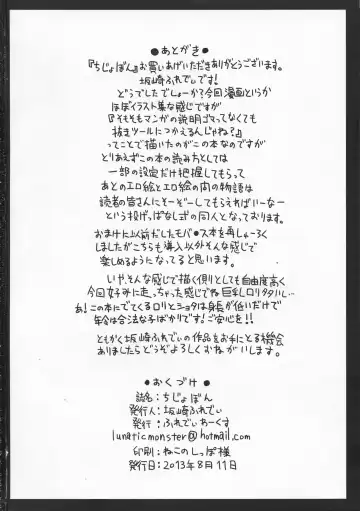 ●あとがき●
『ちじょぼん』お買いあげいただきありがとうございます。
坂崎ふれでぃです!
どうでしたでしょーか?今回漫画というか
ほぼイラスト集な感じですが
『そもそもマンガの説明ゴマってなくても
抜きツールにつかえるんじゃね?』
ってことで描いたのがこの本なのですが
とりあえずこの本の読み方としては
一部の設定だけ把握してもらって
あとのエロ絵とエロ絵の間の物語は
読者の皆さんにそーぞーしてもらえればいーなー
という投げっぱなし式の同人となっております。
おまけに以前だしたモバ●ス本を再しゅーろく
しましたがこちらも導入以外そんな感じで
楽しめるようになってると思います。
いや、そんな感じで描く側としても自由度高く
今回好みに走っちゃった感じでね巨乳ロリタノシー
あ!この本にでてくるロリとショタは身長が低いだけで
年令は合法な子ばかりです!ご安心を!!
ともかく坂崎ふれでぃの作品をお手にとる機会
ありましたらどうぞよろしくおねがいします。
●おくづけ●
誌名:ちじょぼん
発行人:坂崎ふれでぃ
発行:ふれでぃわーくす
lunaticmonster@hotmail.com
印刷:ねこのしっぽ様
発行日:2013年8月11日